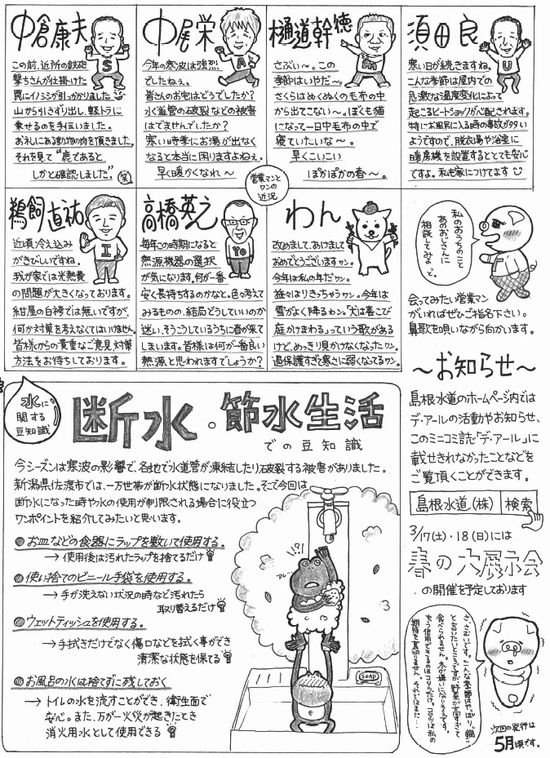 中倉康夫
この前、近所の鉄砲
撃ちさんが仕掛けた
罠にイノシシが引っかかりました
山から引きずり出し、軽トラに
乗せるのを手伝いました。
お礼にある動物の肉を頂きました。
それを見て“鹿であると
しかと確認しました。”
笑
SAMURAI
中尾栄
今年の寒波は強烈
でしたねぇ。
皆さんのお宅はどうでしたか?
水道管の破裂などの被害
はでませんでしたか?
寒い時季にお湯が出なく
なると本当に困りますよねぇ。
早く暖かくなれ～
樋道幹徳
さぶい～。この
季節はいやだ～
さくらはぬくぬくの毛布の中
から出てこない～。ぼくも猫
になって一日中毛布の中で
寝ていたいな～。
早くこいこい
ぽかぽかの春～。
須田良
寒い日が続きますね。
こんな季節は屋内での
急激な温度変化によって
起こるヒートショックが心配されます。
特にお風呂に入る時の事故が多い
ようですので、脱衣場や浴室に
暖房機を設置するととても安心
ですよ。私も家につけてます
営業マンと
ワンの
近況
鵜飼直祐
近頃冷え込み
がきびしいですね。
我が家では光熱費
の問題が大きくなっております。
紺屋の白袴では無いですが、
何か対策を考えなくてはいけません。
皆様からの貴重なご意見・対策
方法をお待ちしております。
高橋英之
毎年この時期になると
熱源機器の選択
が気になります。何が一番
安く長持ちするのかなと。色々考えて
みるものの、結局どうしていいのか
迷い、そうこうしているうちに春が来て
しまいます。皆様は何が一番良い
熱源と思われますでしょうか?
わん
改めまして、あけまして
おめでとうございますャン。
今年は私の年だワン。
益々はりきっちゃうワン。今年は
雪がよく降るわん。“犬は喜こび
庭かけまわる”っていう歌がある
けど、めっきり見かけなくなったワン
過保護すぎて寒さに弱くなってるワン。
私のおうちのこと
あのおじさんに
相談してみよっと。
会ってみたい営業マン
がいればぜひご指名下さい。
鼻歌を唄いながら向かいます。
～お知らせ～
島根水道のホームページ内では
デ・アールの活動やお知らせ、
このミニコミ誌「デ・アール」に
載せきれなかったことなどを
ご覧頂くことができます。
島根水道(株) 検索
3/17(土)・18(日)には
春の大展示会
の開催を予定しております
次回の発行は
5月頃です。
水に
関する
豆知識
断水・節水生活
での豆知識
今シーズンは寒波の影響で、各地で水道管が凍結したり破裂する被害がありました。
新潟県佐渡市では、一万世帯が断水状態になりました。そこで今回は
断水になった時や水の使用が制限される場合に役立つ
ワンポイントを紹介してみたいと思います。
●お皿などの食器にラップを敷いて使用する。
→使用後は汚れたラップを捨てるだけ
●使い捨てのビニール手袋を使用する。
→手が洗えない状況の時など汚れたら
取り替えるだけ
●ウェットティッシュを使用する。
→手拭きだけでなく傷口などを拭く事ができ
清潔な状態を保てる
●お風呂の水は捨てずに残しておく
→トイレの水を流すことができ、衛生面で
安心。また、万が一火災が起きたとき
消火用水として使用できる
SOAP